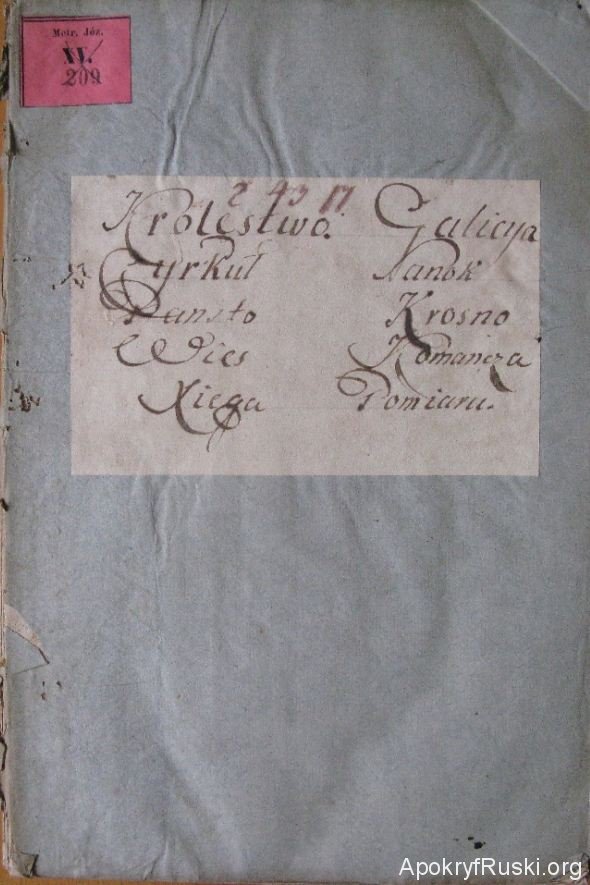 Metr. Józ.
XV.
209
2 43 17
Królestwo. Galicya
Cyrkuł Sanok
Pansto Krosno
Wies Komańcza
Xiega Pomiaru.
ApokryfRuski.org